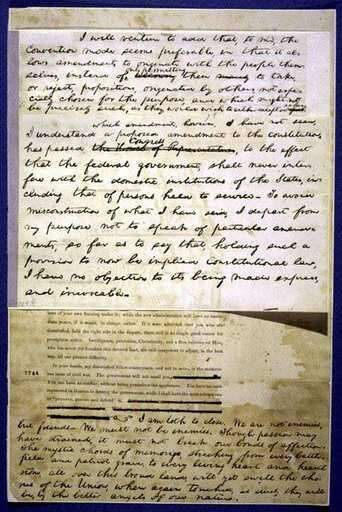 I will venture to add that to me, the
Convention mode seems preferable, in that it al-
lows amendments to originate with the people them-
selves, instead of only permitting them to take,
or reject, propositions, originated by others, not espe-
cially chosen for the purpose, and which might not
be precisely such, as they would wish to either
which amendment, however, I have not seen,
I understand a proposed amendment to the Constitution
has passed Congress the House of Representatives, to the effect
that the federal government, shall never inter-
fere with the domestic institutions of the States, in-
cluding that of persons held to service. To avoid
misconstruction of what I have said, I depart from
my purpose not to speak of particular amend-
ments, so far as to say that, holding such a
provision to now be implied Constitutional law,
I have no objection to its being made express,
and irrevocable.
tion of your own framing under it; while the new administration will have no imme-
diate power, if it would, to change either. If it were admitted that you who are
dissatisfied, hold the right side in the dispute, there still is no single good reason for
precipitate action. Intelligence, patriotism, Christianity, and a firm reliance on Him,
who has never yet forsaken this favored land, are still competent to adjust, in the best
way, all our present difficulty.
In your hands, my dissatisfied fellow countrymen, and not in mine, is the momentous
issue of civil war. The government will not assail you
You can have no conflict, without being yourselves the aggressors. You have no oath
registered in Heaven to destroy the government, while I shall have the most solemn one
to "preserve, protect and defend" it.
I am loth to close. We are not enemies,
but friends. We must not be enemies. Though passion may
have strained, it must not break our bonds of affection.
The mystic chords of memory, stretching from every battle-
field, and patriot grave, to every living heart and hearth-
stone, all over this broad land, will yet swell the cho-
rus of the Union, when again touched, as surely they will
be, by the better angels of our nature.